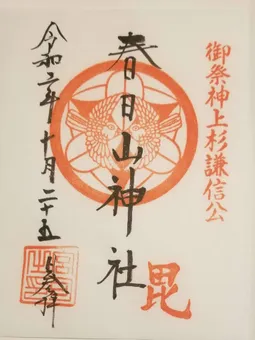 御祭神上杉謙信公
毘
春日山神社
令和二年十月二十五